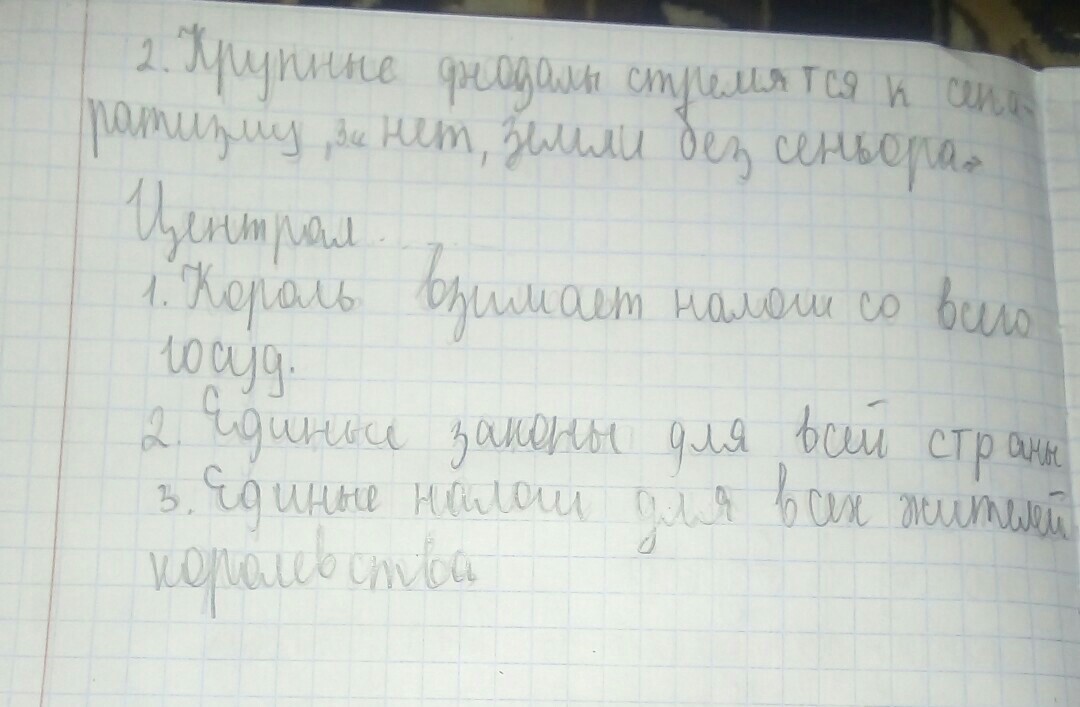 2. Крупные феодалы стремятся к сепа-
ратизму, „нет, земли без сеньора"
Централ.
1. Король взимает налоги со всего
госуд.
2. Единые законы для всей страны
3. Единые налоги для всех жителей
королевства